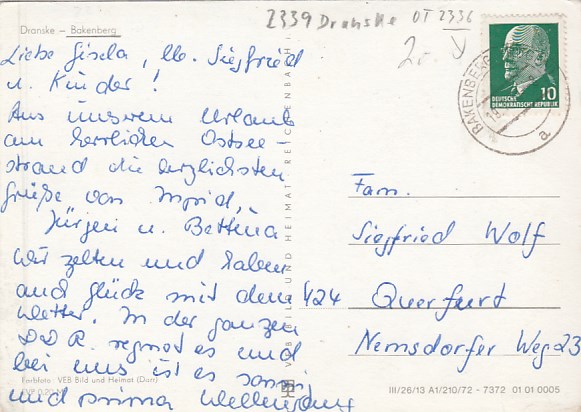 2339 Dranske OT 2336
2.-
Dranske – Bakenberg
Liebe Gisela, lb. Siegfried
u. Kinder!
Aus unserem Urlaub
am herrlichen Ostsee-
strand die herzlichsten
Grüße von Ingrid,
Jürgen u. Bettina
Wir zelten und haben
auch Glück mit dem
Wetter. In der ganzen
DDR regnet es und
bei uns ist es sonnig
und prima Wellengang
Farbfoto: VEB Bild und Heimat (Darr)
VEB BILD UND HEIMAT REICHENBACH I.
BAKENBERG
a
10
DEUTSCHE
DEMOKRATISCHE REPUBLIK
Fam.
Siegfried Wolf
424 Querfurt
Nemsdorfer Weg 23
III/26/13 A1/210/72 - 7372 01 01 0005